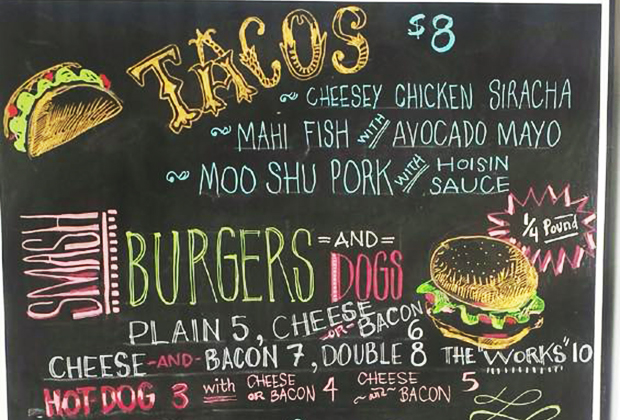 TACOS $8
~ CHEESEY CHICKEN SIRACHA
~ MAHI FISH WITH AVOCADO MAYO
~ MOO SHU PORK WITH HOISIN SAUCE
1/4 Pound
SMASH BURGERS =AND= DOGS
PLAIN 5, CHEESE -OR- BACON 6
CHEESE -AND- BACON 7, DOUBLE 8 THE "WORKS" 10
HOT DOG 3 with CHEESE OR BACON 4 CHEESE BACON 5